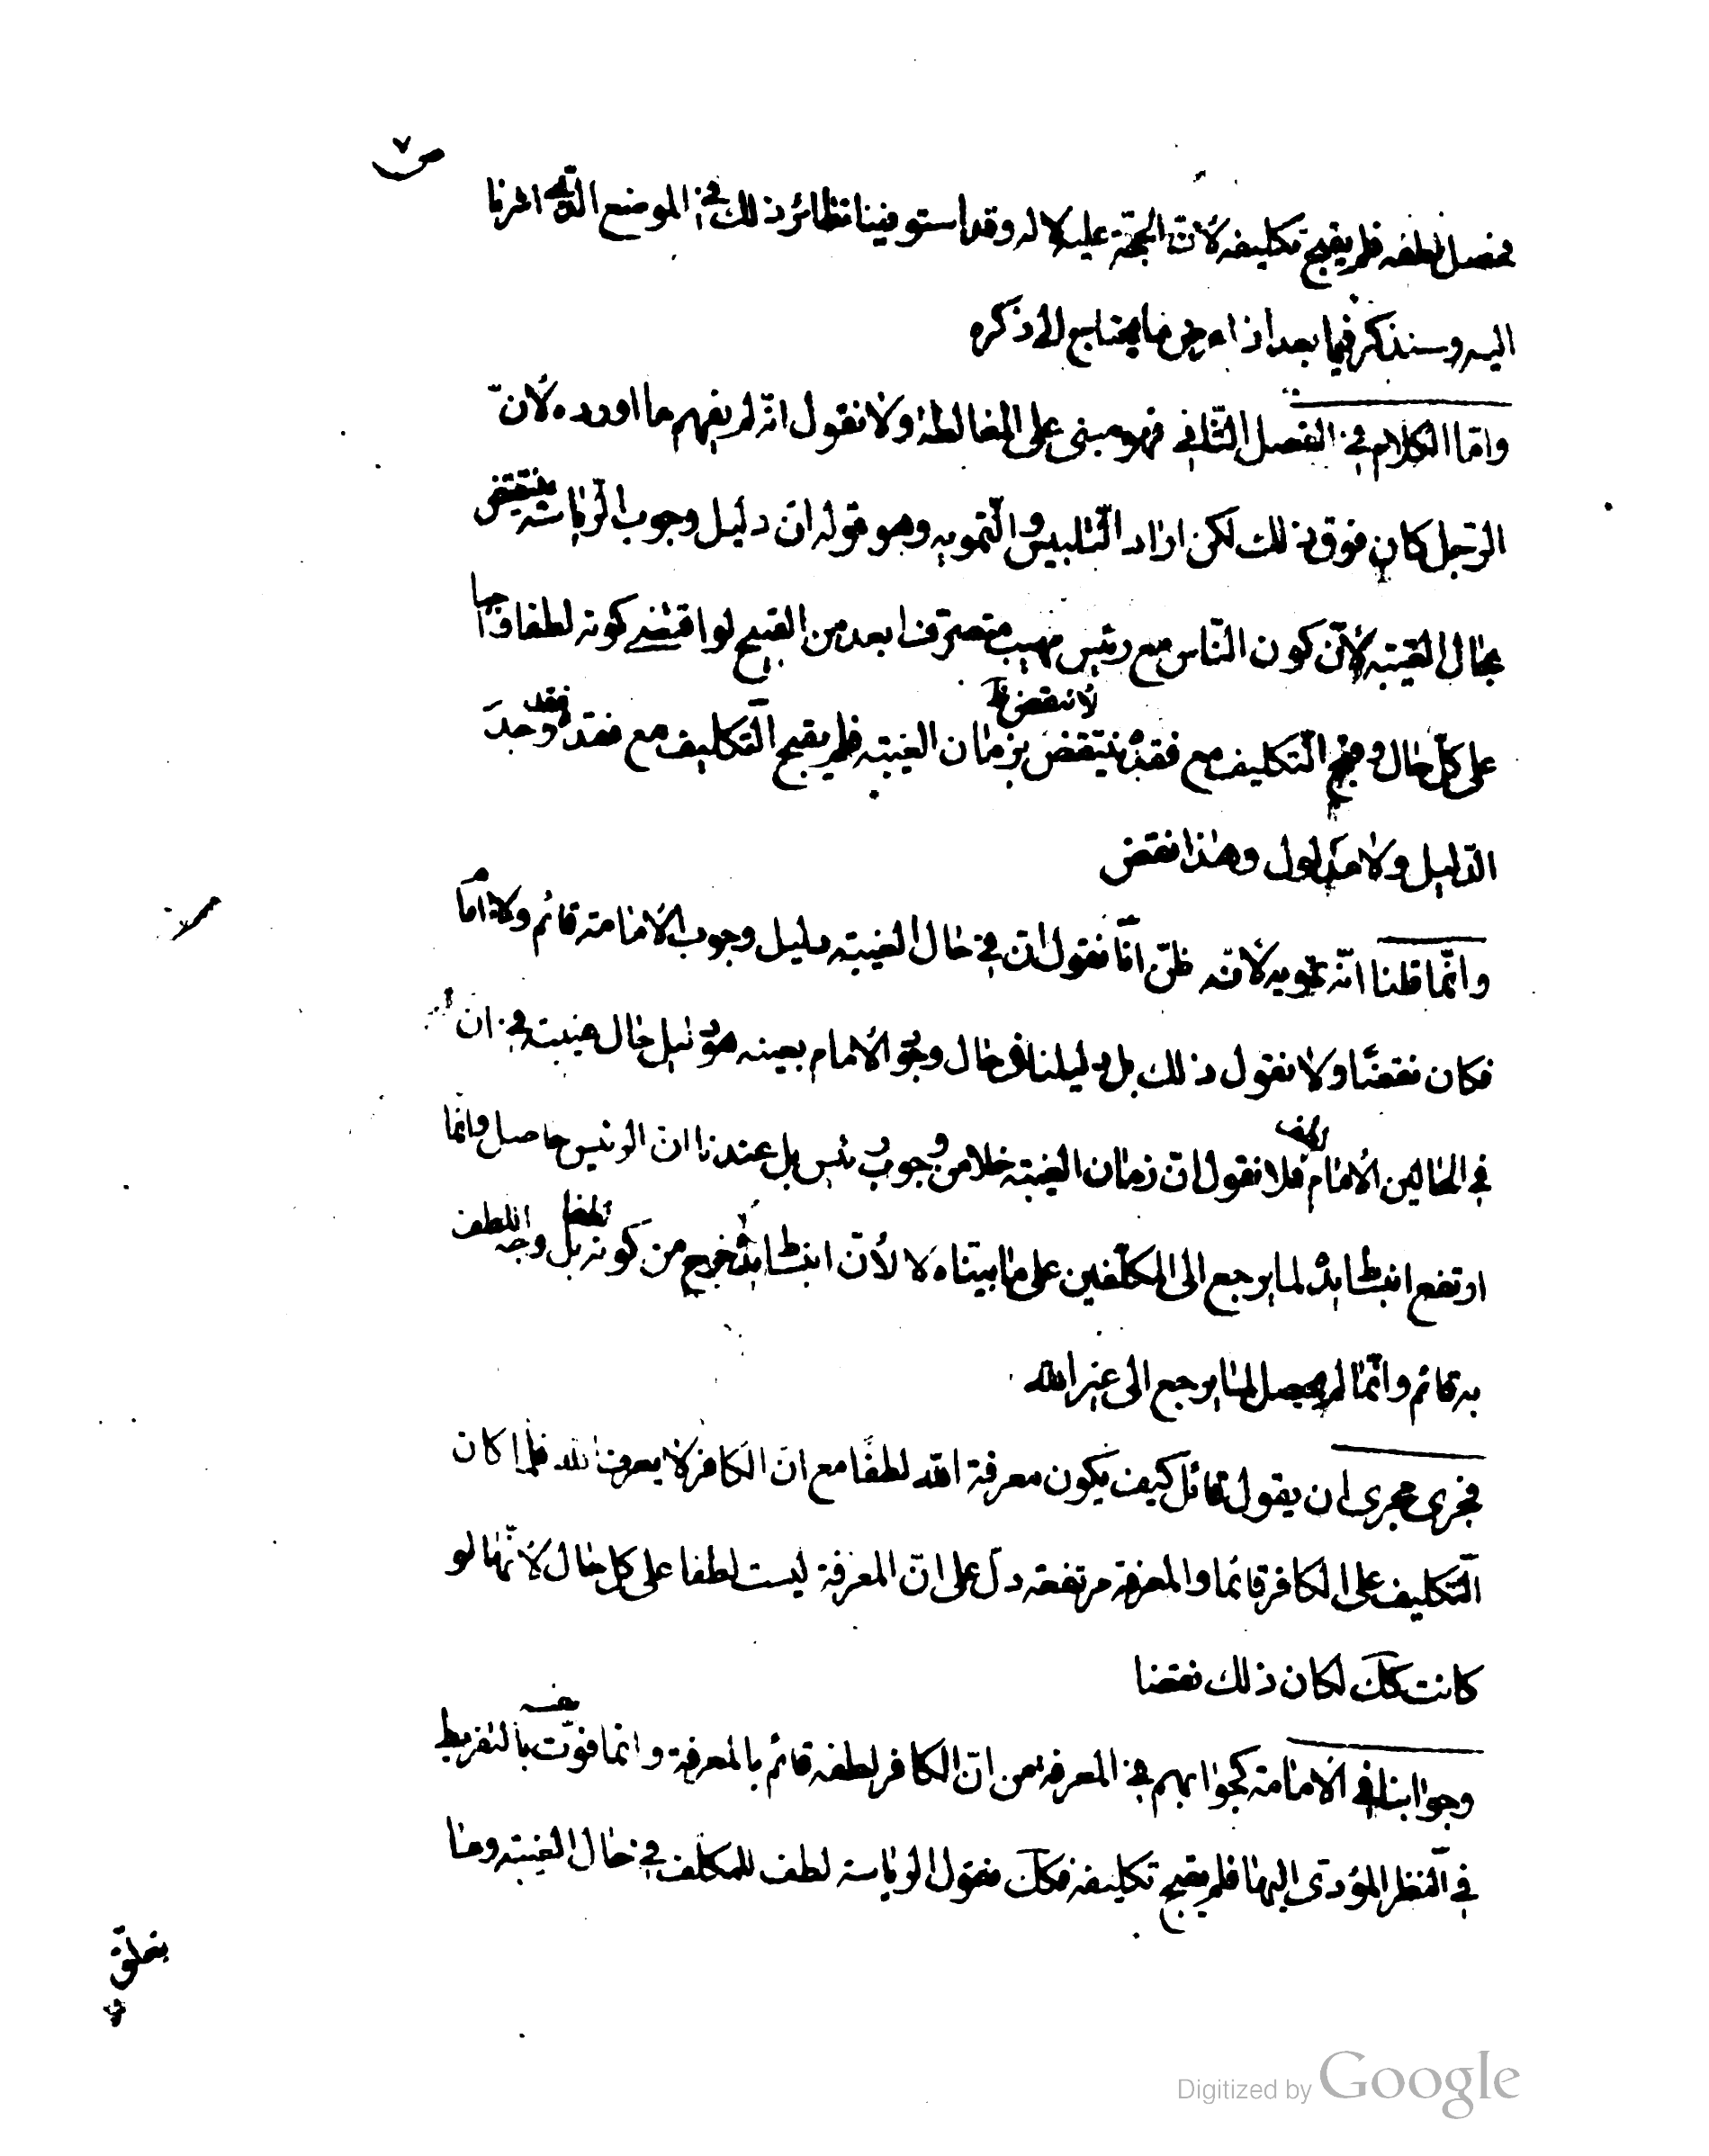 ص٧
فحصل لطفه فلم يقبح تكليفه لأنّ الحجّة عليه لا له وقد استوفينا نظائر ذلك في الموضع الّذي اشرنا
اليه وسنذكر فيما بعد اذا عرض ما يحتاج الى ذكره
وامّا الكلام في الفصل الثّاني فهو مبنى على المغالطة ولا نقول انّه لم يفهم ما اورده لأنّ
الرّجل كان فوق ذلك لكن اراد التّلبيس والتّمويه وهو قوله انّ دليل وجوب الرّياسة ينتقض
بحال الغيبة لأنّ كون النّاس مع رئيس مهيب متصرّف ابعد من القبيح لو اقتضى كونه لطفا واجبا
على كلّ حال وقبح التّكليف مع فقده ينتقض بزمان الغيبة فلم يقبح التّكليف مع فقده فقد وجد
لانتقض
الدّليل ولا مدلول وهذا نقض
وانّما قلنا انّه تمويه لأنّه ظنّ انّا نقول انّ في حال الغيبة دليل وجوب الأمامة قائم ولا امام
فكان نقضًا ولا نقول ذلك بل دليلنا في حال وجود الأمام بعينه هو دليل حال غيبته في انّ
في الحالين الأمام لطف فلا نقول انّ زمان الغيبة خلا من وجوب رئيس بل عندنا انّ الرئيس حاصل وانّما
ارتفع انبساط يده لما يرجع الى المكلّفين على ما بيّناه لا لأنّ انبساط يده خرج من كونه لطفا بل وجه اللطف
به قائم وانّما لم يحصل لما يرجع الى غير الله
فجرى مجرى ان يقول قائل كيف يكون معرفة الله لطفًا مع انّ الكافر لا يعرف الله فلما كان
التّكليف على الكافر قائما والمعرفة مرتفعة دلّ على انّ المعرفة ليست لطفا على كل حال لأنّها لو
كانت كك لكان ذلك نقضا
وجوابنا في الأمامة كجوابهم في المعرفة من انّ الكافر لطفه قائم بالمعرفة وانما فوّت نفسه بالتفريط
في النّظر المؤدّى اليها فلم يقبح تكليفه فكك نقول الرياسة لطف للمكلف في حال الغيبة وما
يتعلق